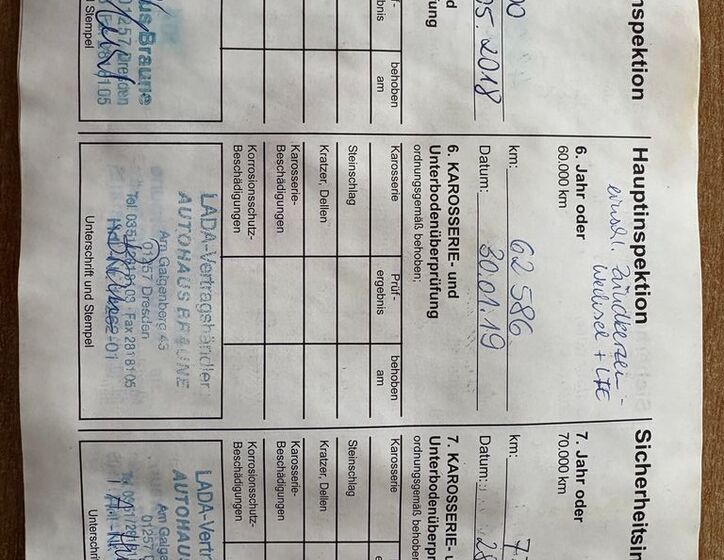 nspektion
00
05.2018
nd
fung
f-
ebnis
behoben
am
us Braune
01257 Dresden
8105
d Stempel
Hauptinspektion
einschl. Zündkerzen-
Wechsel + LFE
6. Jahr oder
60.000 km
km: 62 586
Datum: 30.01.19
6. KAROSSERIE- und
Unterbodenüberprüfung
ordnungsgemäß behoben;
Karosserie
Prüf-
ergebnis
behoben
am
Steinschlag
Kratzer, Dellen
Karosserie-
Beschädigungen
Korrosionsschutz-
Beschädigungen
LADA-Vertragshändler
AUTOHAUS BRAUNE
Am Galgenberg 43
01257 Dresden
Fax 281 81 05
Unterschrift und Stempel
Sicherheitsin
7. Jahr oder
70.000 km
km: 7
Datum: 28
7. KAROSSERIE- u
Unterbodenüberp
ordnungsgemäß beho
Karosserie
e
Steinschlag
Kratzer, Dellen
Karosserie-
Beschädigungen
Korrosionsschutz-
Beschädigungen
LADA-Vertr
AUTOHAUS
Am Galge
01257
Unterschri